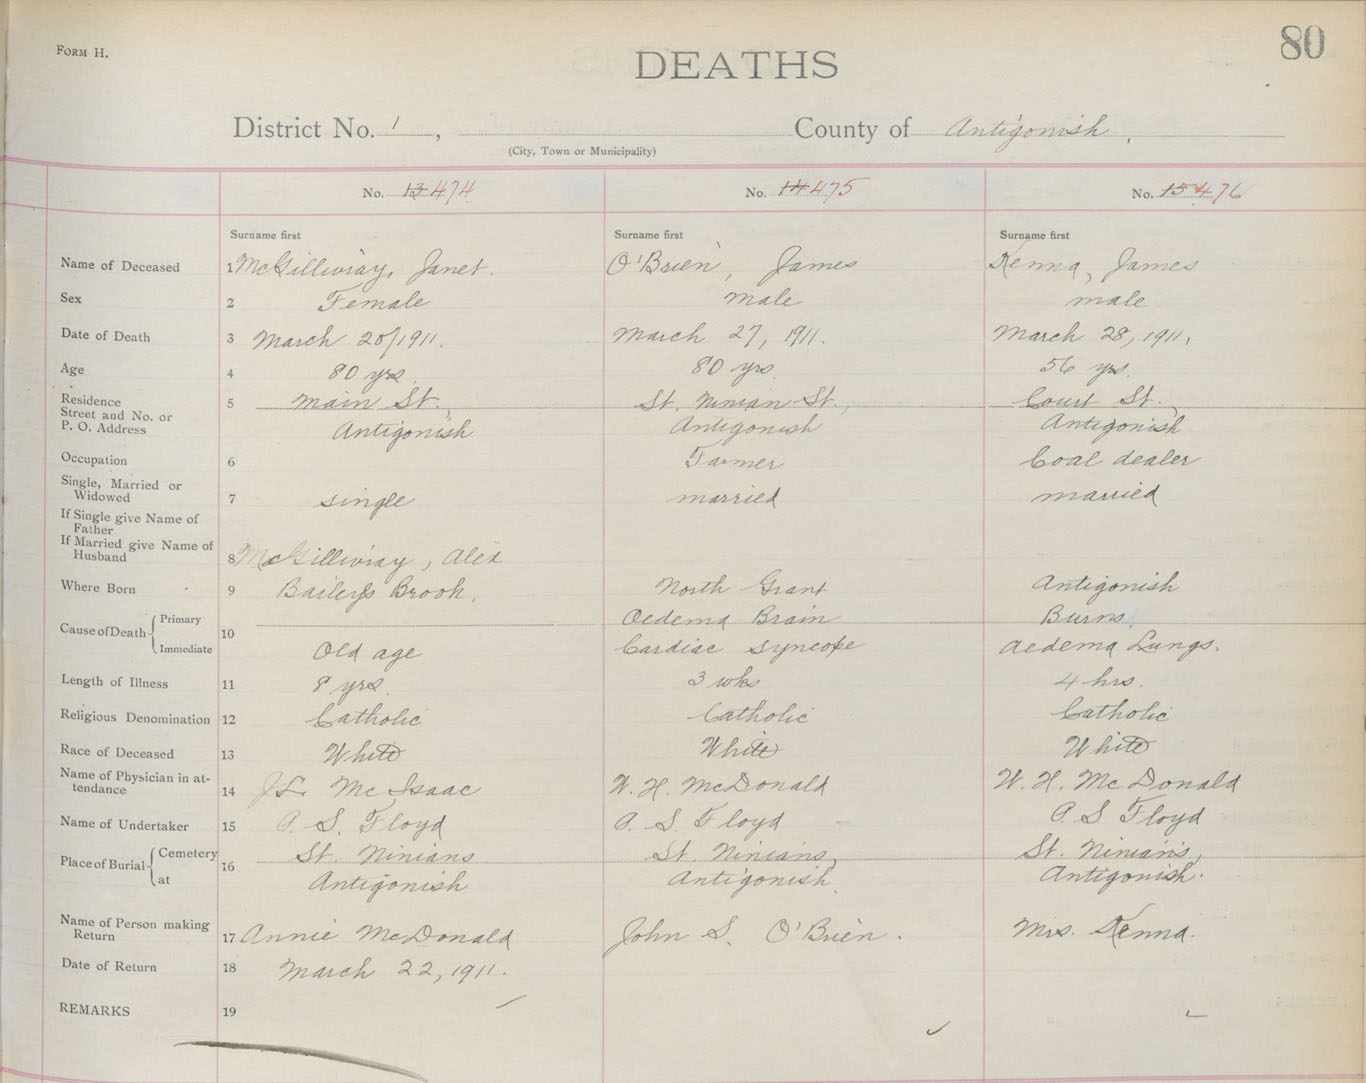 80
FORM H.
DEATHS
District No. 1, County of Antigonish,
(City, Town or Municipality)
No. 13 474 No. 14 475 No. 15 476
Surname first Surname first Surname first
Name of Deceased 1 McGillivray, Janet. O'Brien, James Kenna, James
Sex 2 Female male male
Date of Death 3 March 20/1911. March 27, 1911. March 28, 1911,
Age 4 80 yrs. 80 yrs. 56 yrs.
Residence 5 Main St., St. Ninian St., Court St.,
Street and No. or
P. O. Address Antigonish Antigonish Antigonish
Occupation 6 Farmer Coal dealer
Single, Married or
Widowed 7 single married married
If Single give Name of
Father
If Married give Name of
Husband 8 McGillivray, Alex
Where Born 9 Baileys Brook, North Grant Antigonish
Cause of Death Primary 10 Oedema Brain Burns.
Immediate Old age Cardiac Syncope Aedema Lungs.
Length of Illness 11 8 yrs. 3 wks 4 hrs.
Religious Denomination 12 Catholic Catholic Catholic
Race of Deceased 13 White White White
Name of Physician in at-
tendance 14 McIsaac W. H. McDonald W. H. McDonald
Name of Undertaker 15 P. S. Floyd P. S. Floyd P S Floyd
Place of Burial Cemetery 16 St. Ninians St. Ninians, St. Ninians,
at Antigonish Antigonish. Antigonish.
Name of Person making
Return 17 Annie McDonald John S. O'Brien. Mrs. Kenna.
Date of Return 18 March 22, 1911.
REMARKS 19